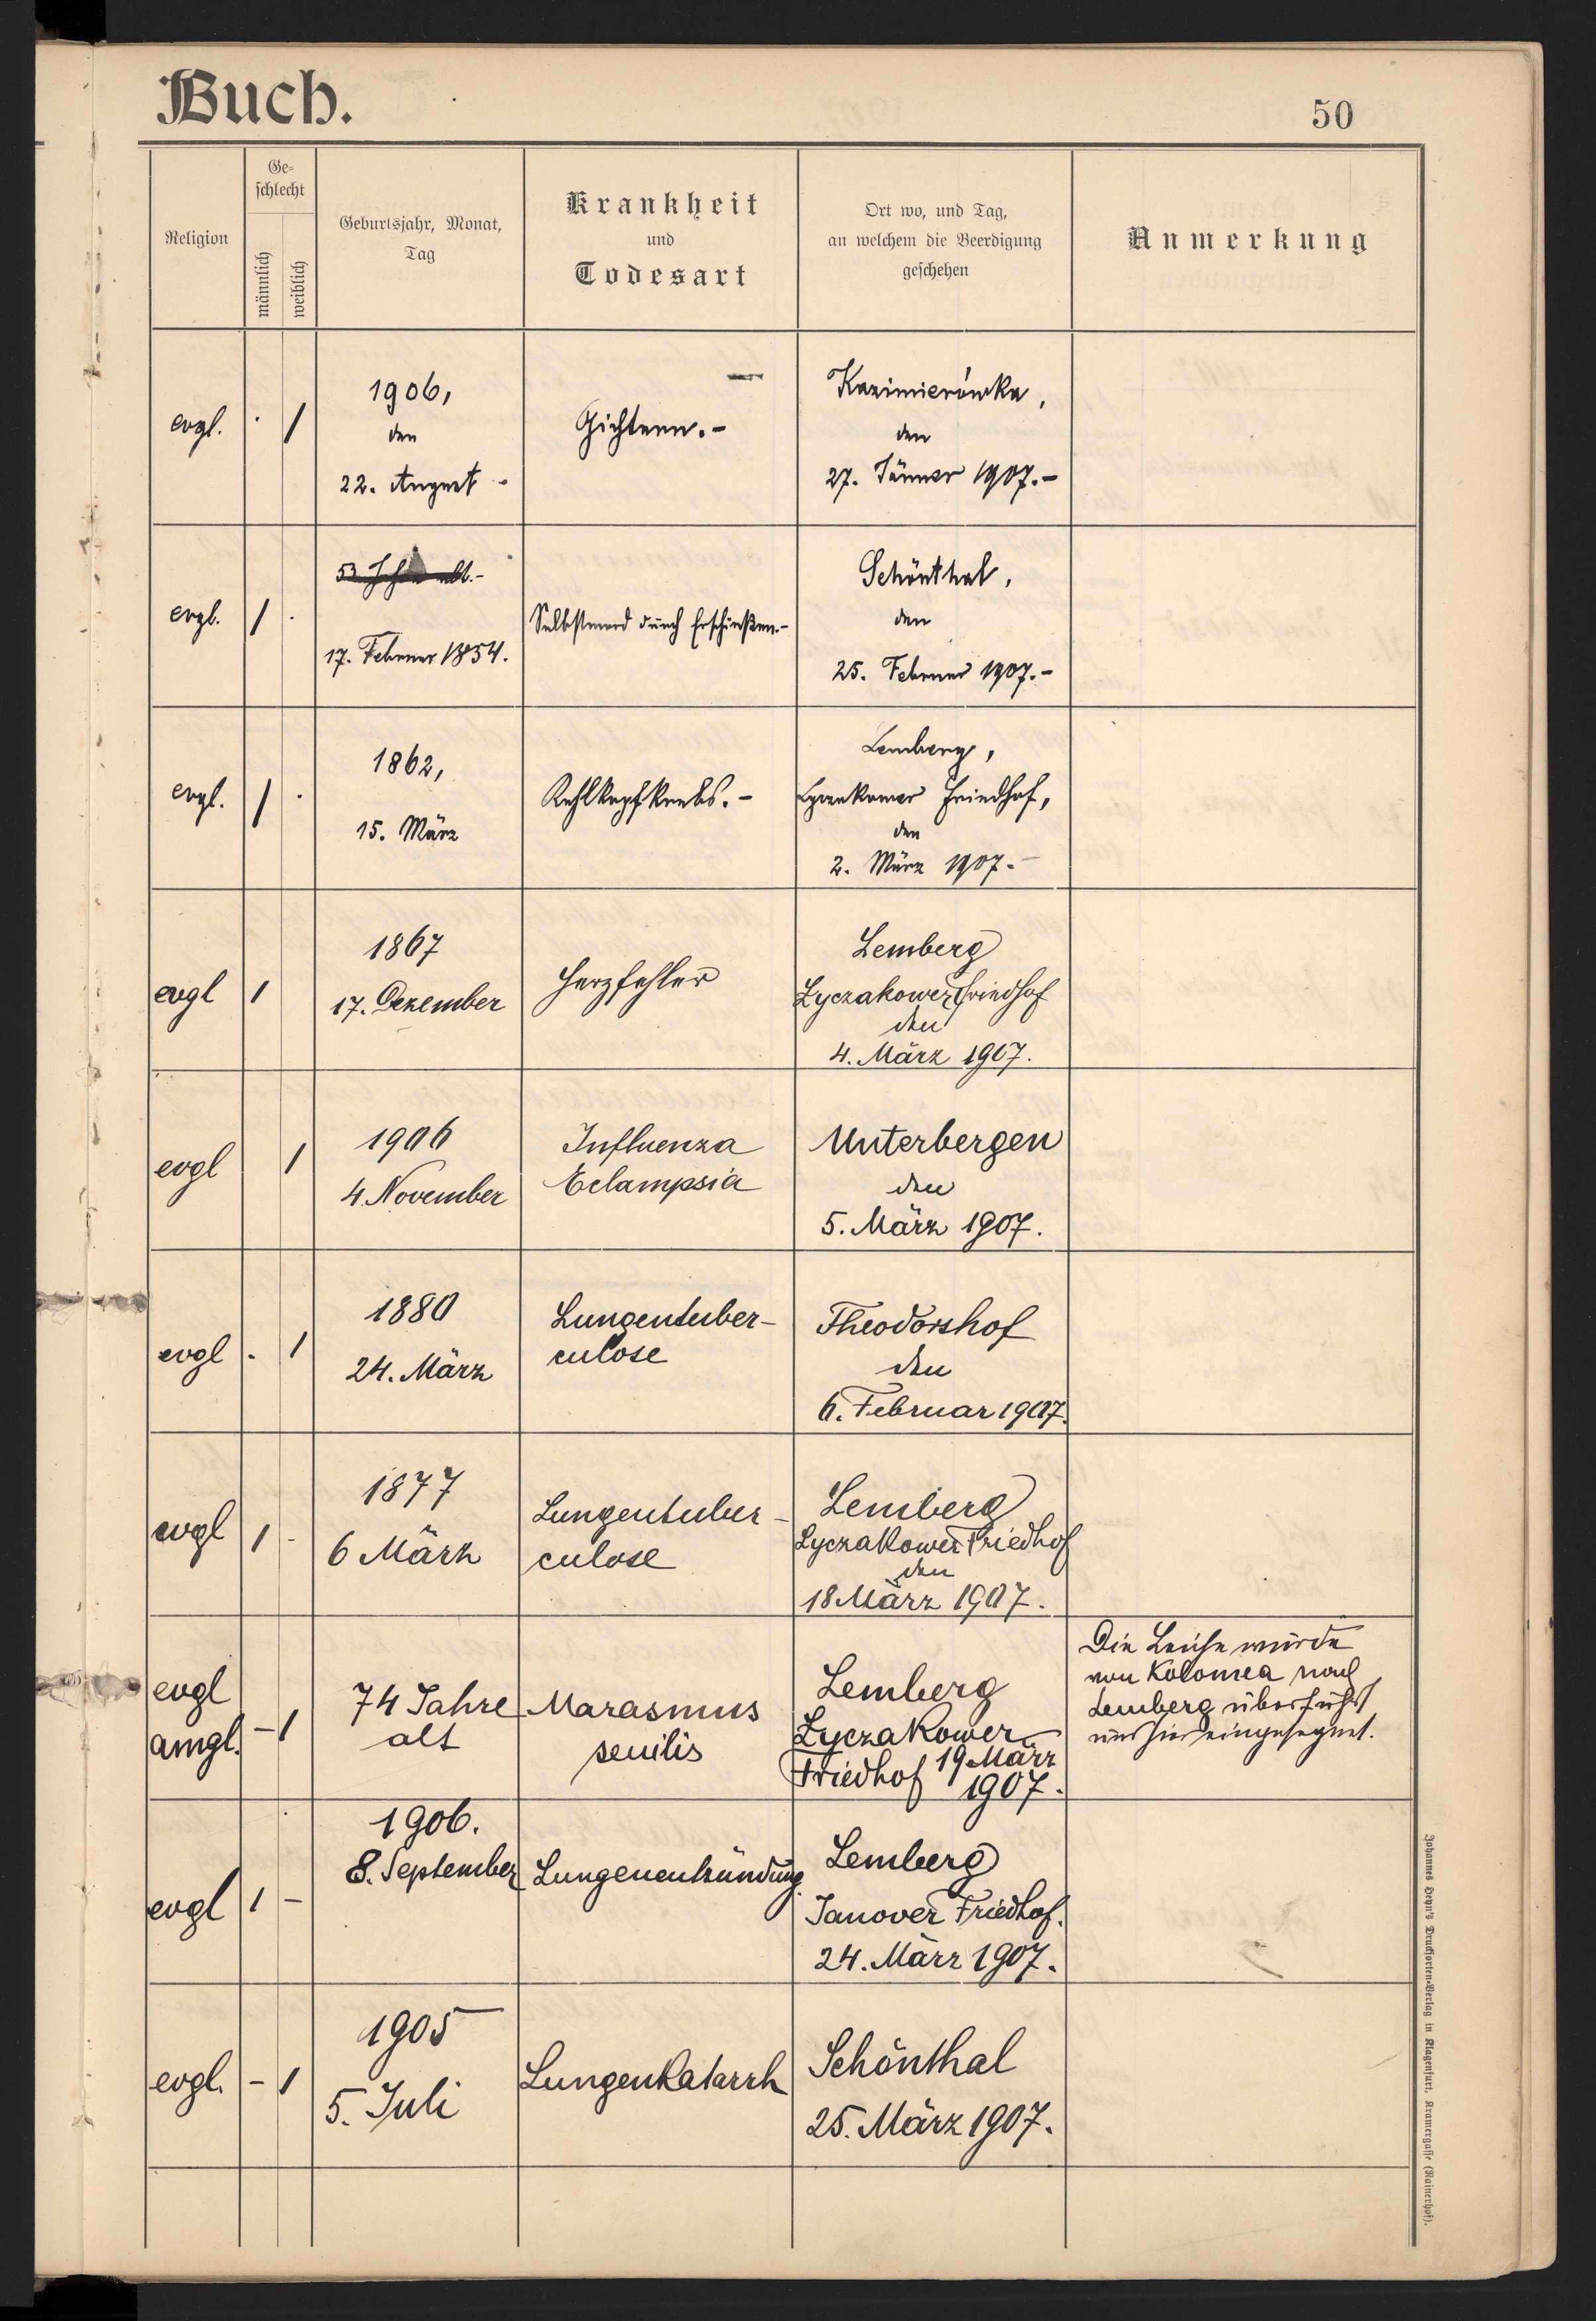 Buch.
50
Religion
Ge-
schlecht
männlich
weiblich
Geburtsjahr, Monat,
Tag
Krankheit
und
Todesart
Ort wo, und Tag,
an welchem die Beerdigung
geschehen
Anmerkung
evgl. · /
1906,
den
22. August -
Gichtern.-
Kazimierówka,
den
27. Jänner 1907.-
evgl. / ·
53 Jahre alt.-
17. Februar 1854.
Selbstmord durch Erschießen.-
Schönthal,
den
25. Februar 1907.-
evgl. / ·
1862,
15. März
Kehlkopfkrebs.-
Lemberg,
Lyczakower Friedhof,
den
2. März 1907.-
evgl /
1867
17. Dezember
Herzfehler
Lemberg
Lyczakower Friedhof
den
4. März 1907.
evgl /
1906
4. November
Influenza
Eclampsia
Unterbergen
den
5. März 1907.
evgl · /
1880
24. März
Lungentuber-
culose
Theodorshof
den
6. Februar 1907.
evgl / -
1877
6 März
Lungentuber-
culose
Lemberg
Lyczakower Friedhof
den
18 März 1907.
evgl
amgl. - /
74 Jahre
alt
Marasmus
senilis
Lemberg
Lyczakower
Friedhof 19 März
1907.
Die Leiche wurde
von Kolomea nach
Lemberg überführt
und hier eingesegnet.
evgl / -
1906.
8. September
Lungenentzündung.
Lemberg
Janover Friedhof.
24. März 1907.
evgl. - /
1905
5. Juli
Lungenkatarrh
Schönthal
25. März 1907.
Johannes Heyn's Drucksorten-Verlag in Klagenfurt, Kramergasse (Rainerhof).